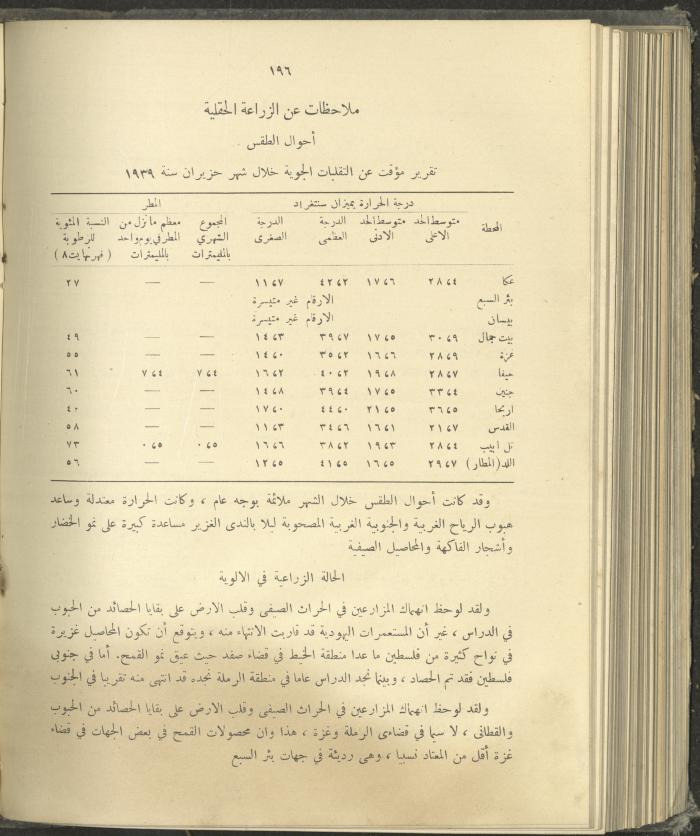 ١٩٦
ملاحظات عن الزراعة الحقلية
أحوال الطقس
تقرير مؤقت عن التقلبات الجوية خلال شهر حزيران سنة ١٩٣٩
درجة الحرارة بميزان سنتغراد المطر
المحطة متوسط الحد الاعلى متوسط الحد الادنى الدرجة العظمى الدرجة الصغرى المجموع الشهري بالمليمترات معظم ما نزل من المطر في يوم واحد بالمليمترات النسبة المئوية للرطوبة (فهرنهايت ٨)
عكا ٢٨،٤ ١٧،٦ ٤٢،٢ ١١،٧ — — ٢٧
بئر السبع الارقام غير متيسرة
بيسان الارقام غير متيسرة
بيت جمال ٣٠،٩ ١٧،٥ ٣٩،٧ ١٤،٣ — — ٤٩
غزة ٢٨،٩ ١٦،٦ ٣٥،٢ ١٤،٠ — — ٥٥
حيفا ٢٨،٧ ١٩،٨ ٤٠،٢ ١٦،٢ ٧،٤ ٧،٤ ٦١
جنين ٣٣،٤ ١٧،٥ ٣٩،٤ ١٤،٨ — — ٦٠
اريحا ٣٦،٥ ٢١،٥ ٤٤،٠ ١٧،٠ — — ٤٠
القدس ٢١،٧ ١٦،١ ٣٤،٦ ١١،٣ — — ٥٨
تل ابيب ٢٨،٤ ١٩،٣ ٣٨،٢ ١٦،٦ ٠،٥ ٠،٥ ٧٣
اللد (المطار) ٢٩،٧ ١٦،٥ ٤١،٥ ١٢،٥ — — ٥٦
وقد كانت أحوال الطقس خلال الشهر ملائمة بوجه عام ، وكانت الحرارة معتدلة وساعد
هبوب الرياح الغربية والجنوبية الغربية المصحوبة ليلا بالندى الغزير مساعدة كبيرة على نمو الخضار
وأشجار الفاكهة والمحاصيل الصيفية
الحالة الزراعية في الالوية
ولقد لوحظ انهماك المزارعين في الحراث الصيفى وقلب الارض على بقايا الحصائد من الحبوب
في الدراس ، غير أن المستعمرات اليهودية قد قاربت الانتهاء منه ، ويتوقع أن تكون المحاصيل غزيرة
في نواح كثيرة من فلسطين ما عدا منطقة الخيط في قضاء صفد حيث عيق نمو القمح. أما في جنوبى
فلسطين فقد تم الحصاد ، وبينما نجد الدراس عاما في منطقة الرملة نجده قد انتهى منه تقريبا في الجنوب
ولقد لوحظ انهماك المزارعين في الحراث الصيفى وقلب الارض على بقايا الحصائد من الحبوب
والقطانى ، لا سيما في قضاءى الرملة وغزة ، هذا وان محصولات القمح في بعض الجهات في قضاء
غزة أقل من المعتاد نسبيا ، وهى رديئة في جهات بئر السبع